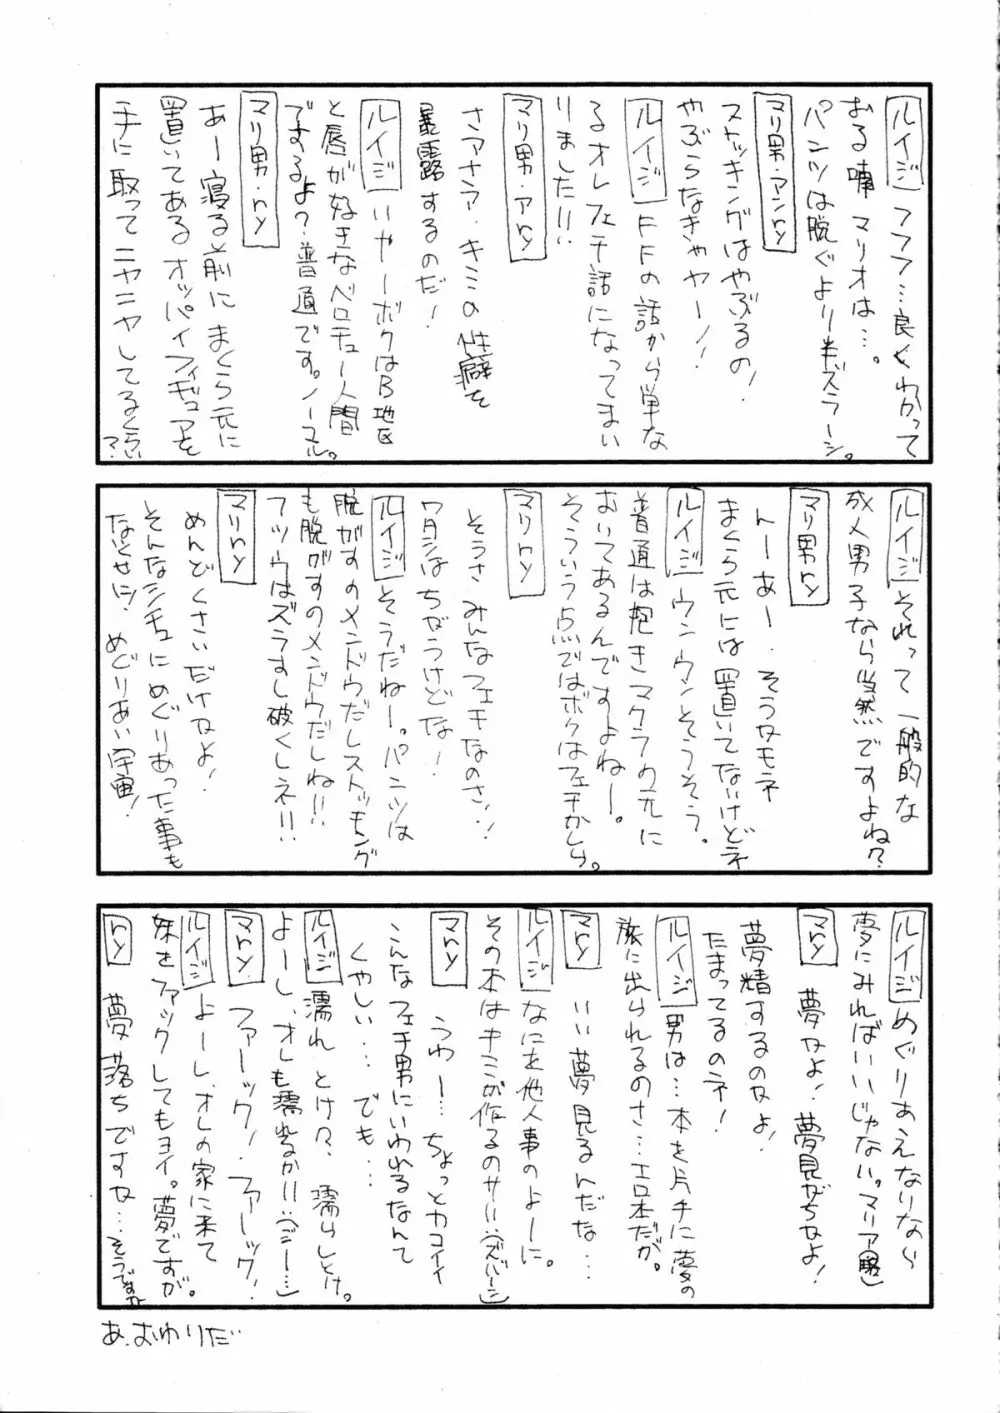 ルイジ フフフ…良くわかって
おる喃 マリオは…。
パンツは脱ぐより半ズラーシ。
マリ男・アンry
ストッキングはやぶるの!
やぶらなきゃヤー!!
ルイジ FFの話から単な
るオレフェチ話になってまい
りました!!!
マリ男・アry
さァさァ・キミの性癖を
暴露するのだ!
ルイジ いやーボクはB地区
と唇が好きなベロチュー人間
ですよ?普通です。ノーマル。
マリ男・ry
あー寝る前にまくら元に
置いてあるオッパイフィギュアを
手に取ってニヤニヤしてるくらい
?
ルイジ それって一般的な
成人男子なら当然ですよね?
マリ男ry
んーあー・そうなモネ
まくら元には置いてないけどネ
ルイジ ウンウンそうそう。
普通は抱きマクラの元に
おいてあるんですよねー。
そういう点ではボクはフェチかしら。
マリry
そうさみんなフェチなのさ!!
ワタシはちがうけどな!
ルイジ そうだねー。パンツは
脱がすのメンドウだしストッキング
も脱がすのメンドウだしね!!
フツウはズラすし破くしネ!!
マリry
めんどくさいだけかよ!
そんなシチュにめぐりあった事も
ないくせに!めぐりあい宇宙!
ルイジ めぐりあえないなら
夢にみればいいじゃない。マリア(略)
マry
夢かよ!夢見がちかよ!
夢精するのかよ!
たまってるのネ!
ルイジ 男は…本を片手に夢の
旅に出られるのさ…エロ本だが。
マry
いい夢見るんだな…
ルイジ なにを他人事のよーに。
その本はキミが作るのサ!!(ズバーン)
マry
うわー…ちょっとカコイイ
こんなフェチ男にいわれるなんて
くやしい…でも…
ルイジ 濡れとけ?濡らしとけ。
よーし、オレも濡れるか!!(ジー…)
マry ファーック!ファーック!
ルイジ よーし、オレの家に来て
妹をファックしてもヨイ。夢ですが。
ry 夢落ちですか…そうですか
あ、おわりだ…